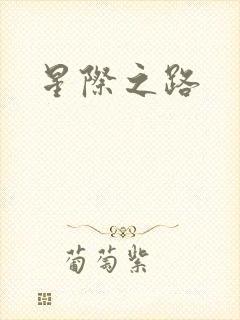 星際之路
葡萄紫